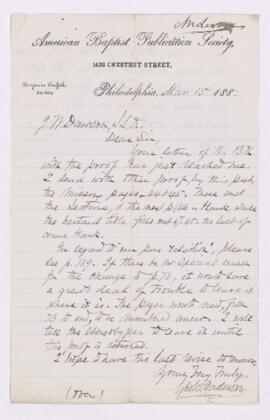 Anderson
American Baptist Publication Society,
1420 CHESTNUT STREET,
Benjamin Griffith,
Philadelphia, Mar. 15 188
J. W. Dawson, LL.D.
Dear Sir
Your letter of the 13th
with the proof has just reached me.
I send with other proof by this post
the missing pages 44 & 45. These end
the section, & the next p. 46 is blank, since
the
course blank.
In regard to " " please
see p. 139. If there be no special reason
for the change to p. 73, it would save
a great deal of trouble to leave it
where it is. The pages would need, from
73 to end, to be numbered anew. I
the stereotypers to leave it until
this proof is returned.
I hope I have the last revise to
Yours Very Truly,
Anderson
(over)